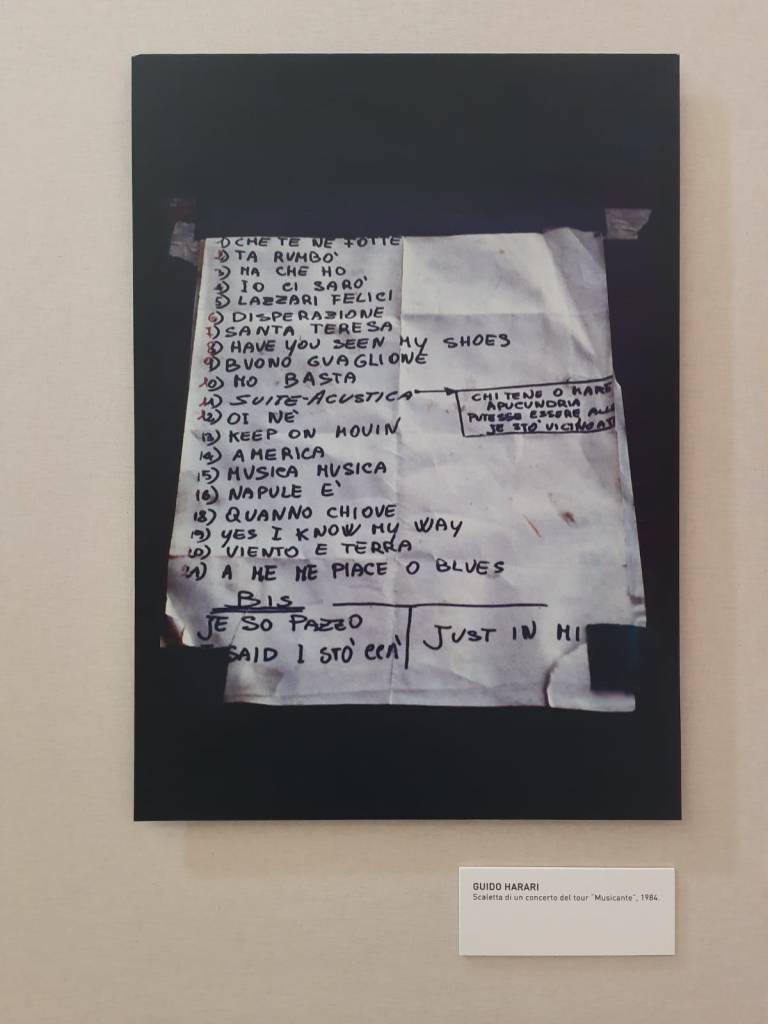 1) CHE TE NE FOTTE
2) TA RUMBO'
3) MA CHE HO
4) IO CI SARO'
5) LAZZARI FELICI
6) DISPERAZIONE
7) SANTA TERESA
8) HAVE YOU SEEN MY SHOES
9) BUONO GUAGLIONE
10) MO BASTA
11) SUITE-ACUSTICA
CHI TENE O MARE
APUCUNDRIA
PUTESSE ESSERE ALL
JE STO' VICINO A T
12) OI NE'
13) KEEP ON MOVIN
14) AMERICA
15) MUSICA MUSICA
16) NAPULE E'
18) QUANNO CHIOVE
19) YES I KNOW MY WAY
VIENTO E TERRA
A ME ME PIACE O BLUES
BIS
JE SO PAZZO
SAID I STO' CCA'
JUST IN MI
GUIDO HARARI
Scaletta di un concerto del tour "Musicante", 1984.